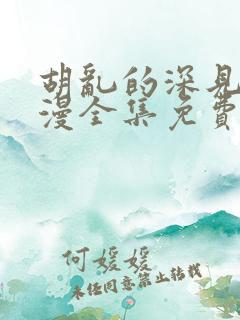 胡亂的深見
漫全集免費
何媛媛
未经同意禁止转载